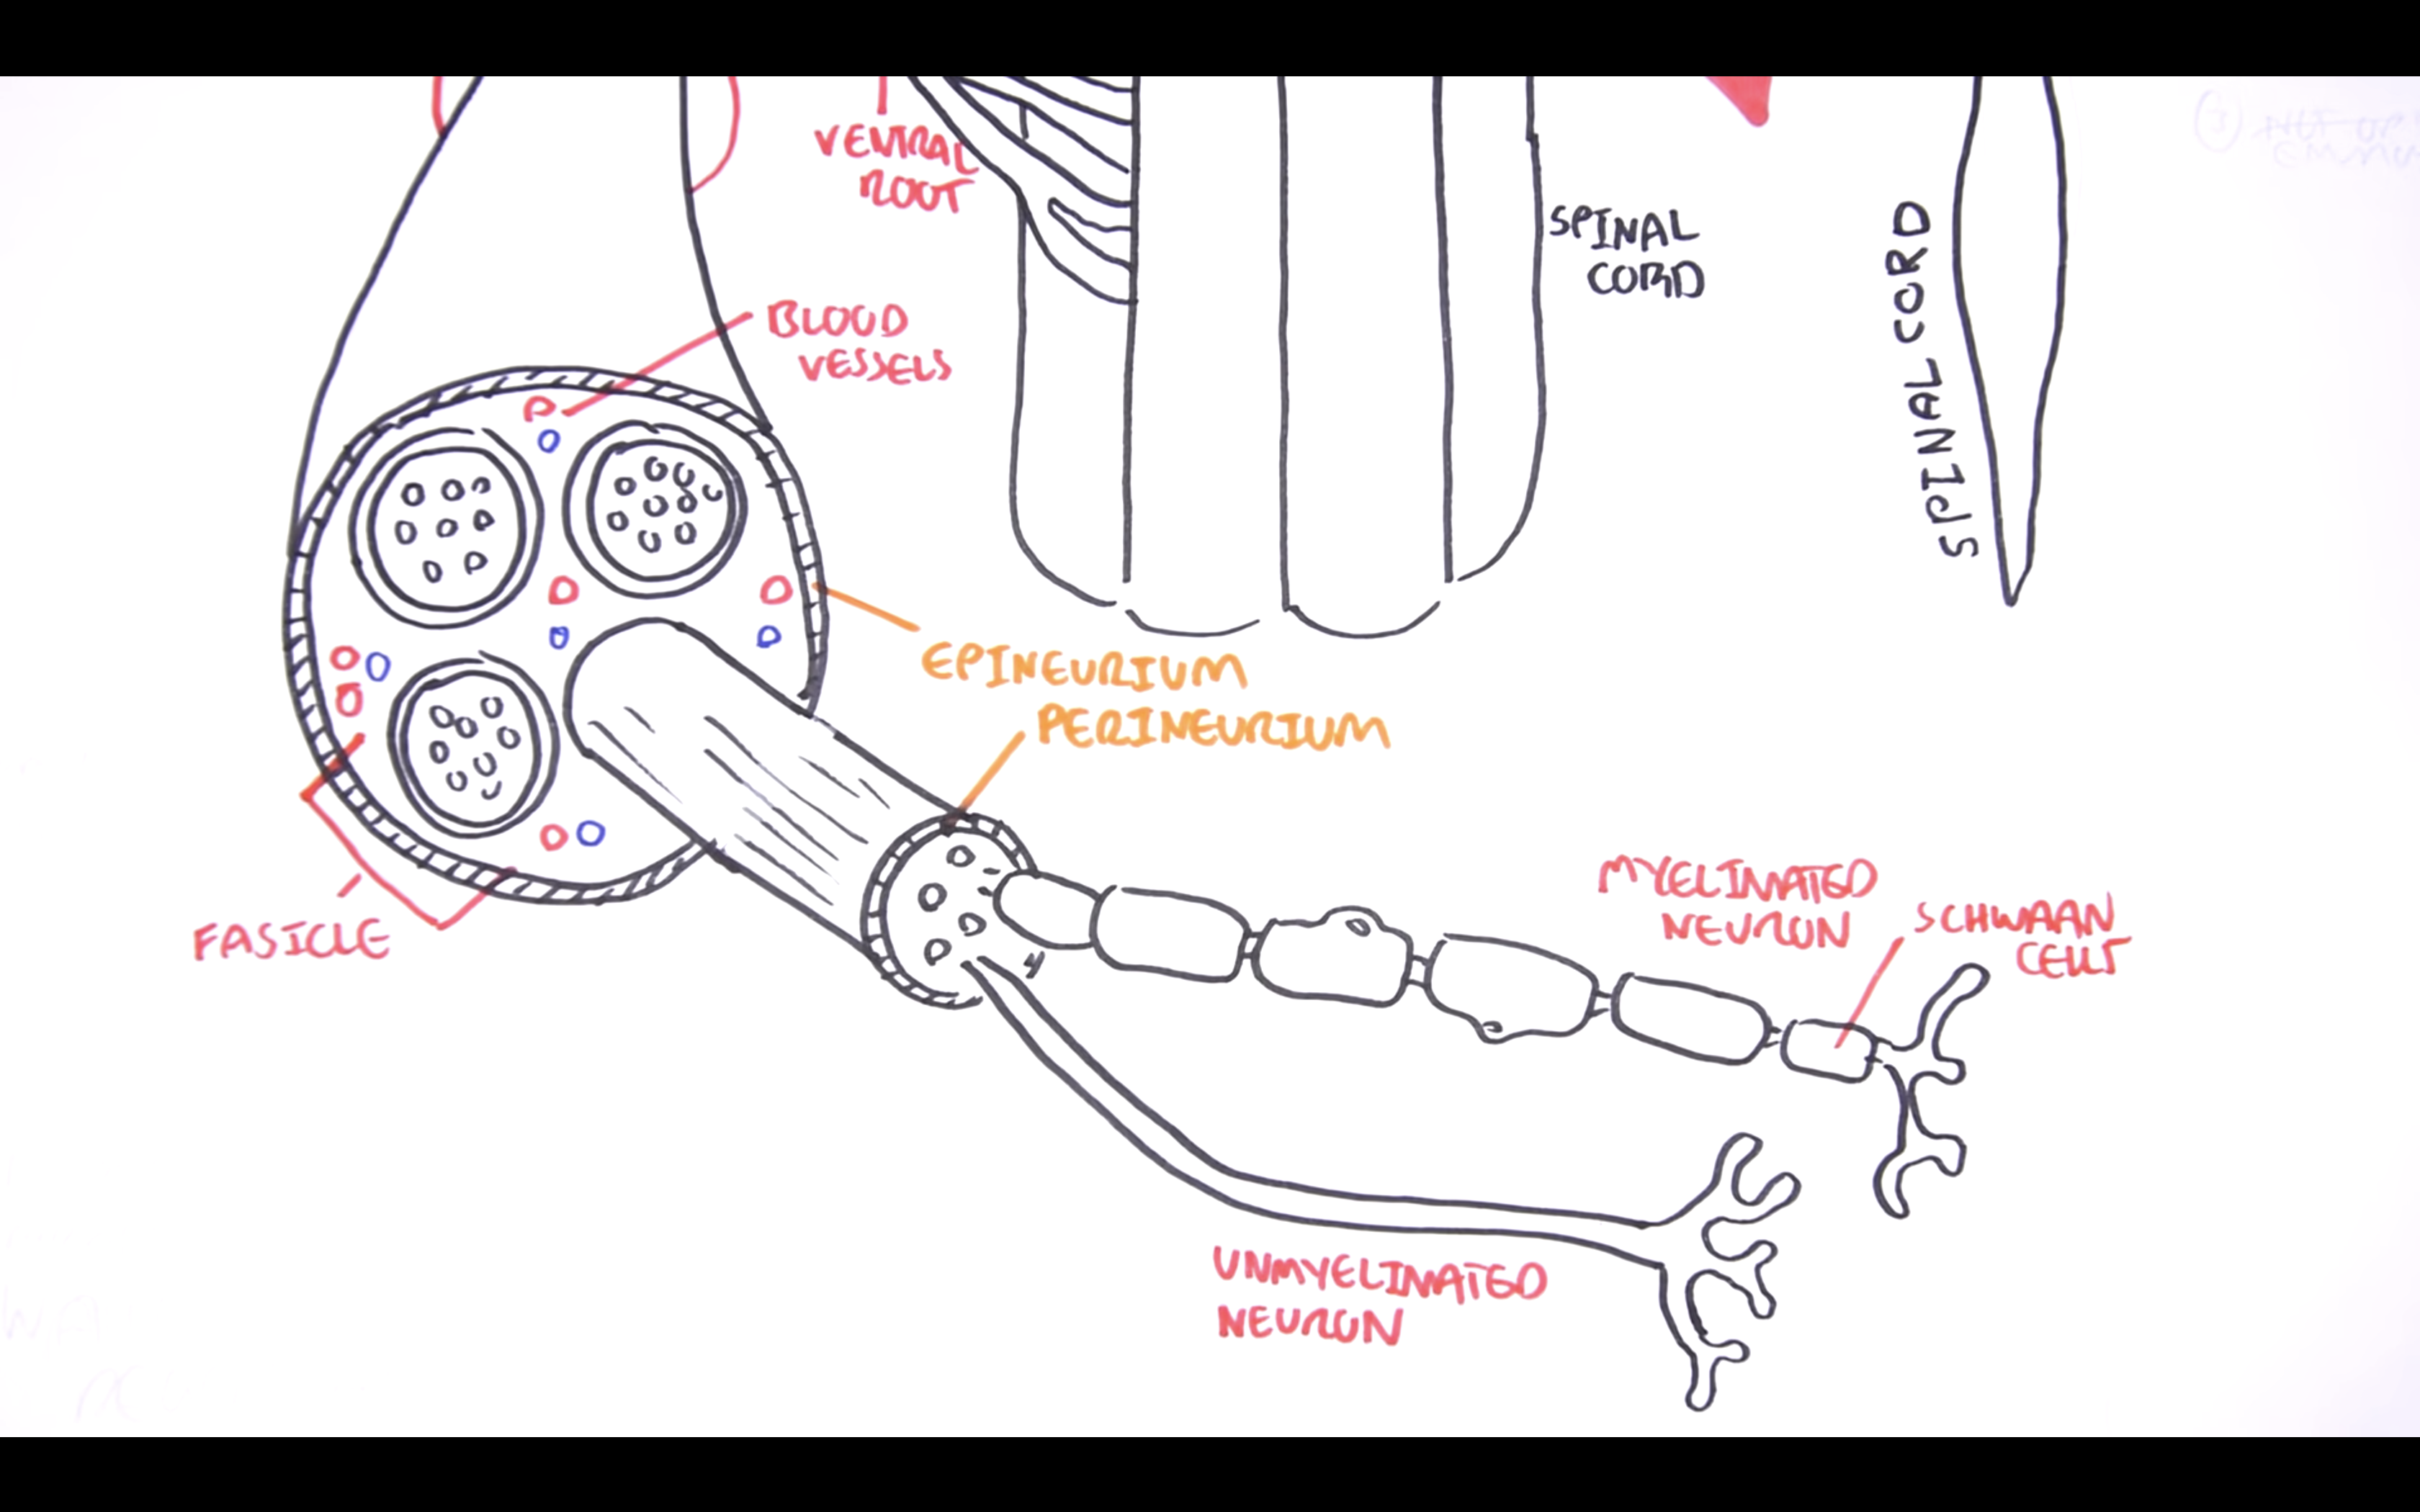 VENTRAL
ROOT
SPINAL
CORD
SPINAL CORD
BLOOD
VESSELS
EPINEURIUM
PERINEURIUM
FASICLE
MYELINATED
NEURON
SCHWAAN
CELLS
UNMYELINATED
NEURON